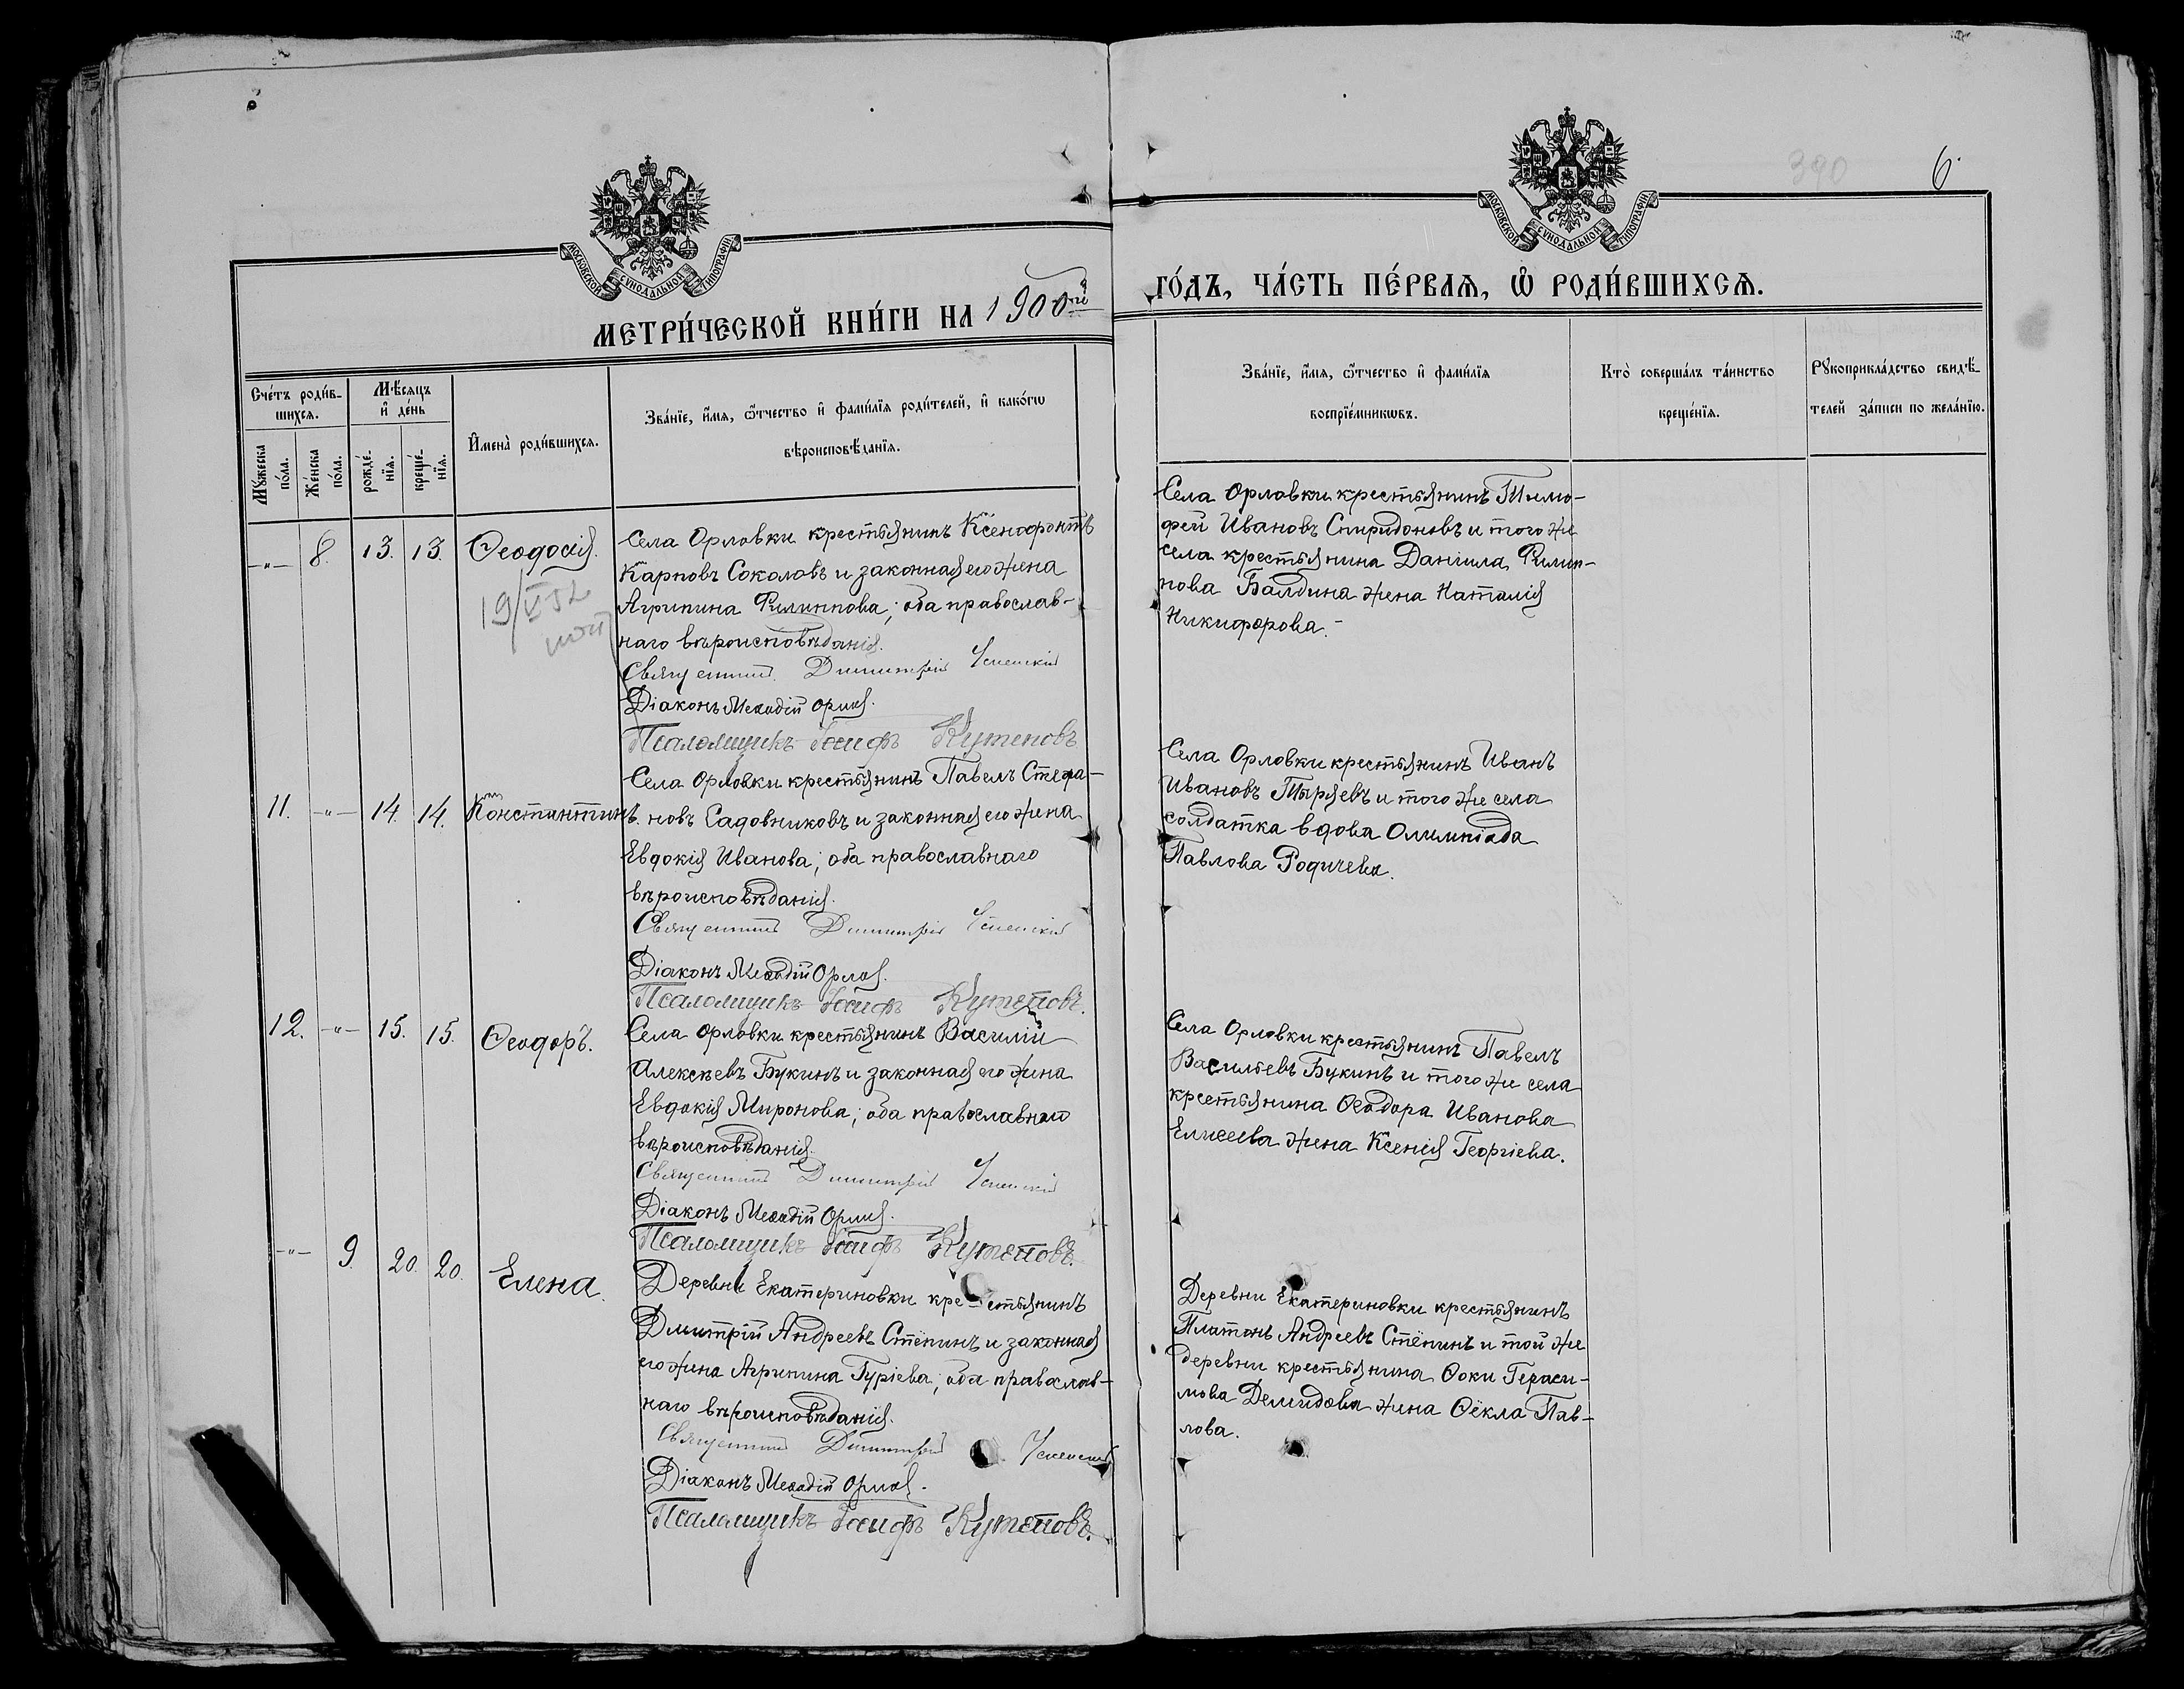 390
6.
МОСКОВСКОЙ СѴНОДАЛЬНОЙ ТИПОГРАФІИ
МОСКОВСКОЙ СѴНОДАЛЬНОЙ ТИПОГРАФІИ
МЕТРИ́ЧЕСКОЙ КНИ́ГИ НА 1900й
ГО́ДЪ, ЧА́СТЬ ПЕ́РВАѦ, Ѽ РОДИ́ВШИХСѦ.
Сче́тъ роди́в-
шихсѧ.
Мꙋ́жеска
по́ла.
Же́нска
по́ла.
Мѣ́сѧцъ
и҆ де́нь
рожде́-
нїѧ.
креще́-
нїѧ.
И҆мена̀ роди́вшихсѧ.
Зва́нїе, и҆́мѧ, ѻ҆́тчество и҆ фами́лїѧ роди́телей, и҆ како́гѡ
вѣроисповѣ́данїѧ.
Зва́нїе, и҆́мѧ, ѻ҆́тчество и҆ фами́лїѧ
воспрїе́мникѡвъ.
Кто̀ соверша́лъ та́инство
креще́нїѧ.
Рꙋкоприкла́дство свидѣ́-
телей за́писи по жела́нїю.
-"- 8. 13. 13. Ѳеодосія.
19/VI 52
Села Орловки крестьянинъ Ксенофонтъ
Карповъ Соколовъ и законная его жена
Агрипина Филиппова; оба православ-
наго вѣроисповѣданія.
Священникъ Димитрій Успенскій
Діаконъ Меѳодій Орлов.
Псаломщикъ Іосифъ Кутеповъ
Села Орловки крестьянинъ Тимо-
фей Ивановъ Спиридоновъ и того же
села крестьянина Даніила Филип-
пова Балдина жена Наталія
Никифорова.-
11. -"- 14. 14. Константинъ.
Села Орловки крестьянинъ Павелъ Стефа-
новъ Садовниковъ и законная его жена
Евдокія Иванова; оба православнаго
вѣроисповѣданія.
Священникъ Димитрій Успенскій
Діаконъ Меѳодій Орлов.
Псаломщикъ Іосифъ Кутеповъ.
Села Орловки крестьянинъ Иванъ
Ивановъ Тыряевъ и того же села
солдатка вдова Олимпіада
Павлова Родичева.
12. -"- 15. 15. Ѳеодоръ.
Села Орловки крестьянинъ Василій
Алексѣевъ Букинъ и законная его жена
Евдокія Миронова; оба православнаго
вѣроисповѣданія.
Священникъ Димитрій Успенскій
Діаконъ Меѳодій Орлов.
Псаломщикъ Іосифъ Кутеповъ.
Села Орловки крестьянинъ Павелъ
Васильевъ Букинъ и того же села
крестьянина Ѳеодора Иванова
Елисеева жена Ксенія Георгіева.
-"- 9. 20. 20. Елена.
Деревни Екатериновки крестьянинъ
Дмитрій Андреевъ Стёпинъ и законная
его жена Агрипина Гуріева; оба православ-
наго вѣроисповѣданія.
Священникъ Димитрій Успенскій
Діаконъ Меѳодій Орлов.
Псаломщикъ Іосифъ Кутеповъ.
Деревни Екатериновки крестьянинъ
Платонъ Андреевъ Стёпинъ и той же
деревни крестьянина Ѳоки Гераси-
мова Демидова жена Ѳёкла Пав-
лова.